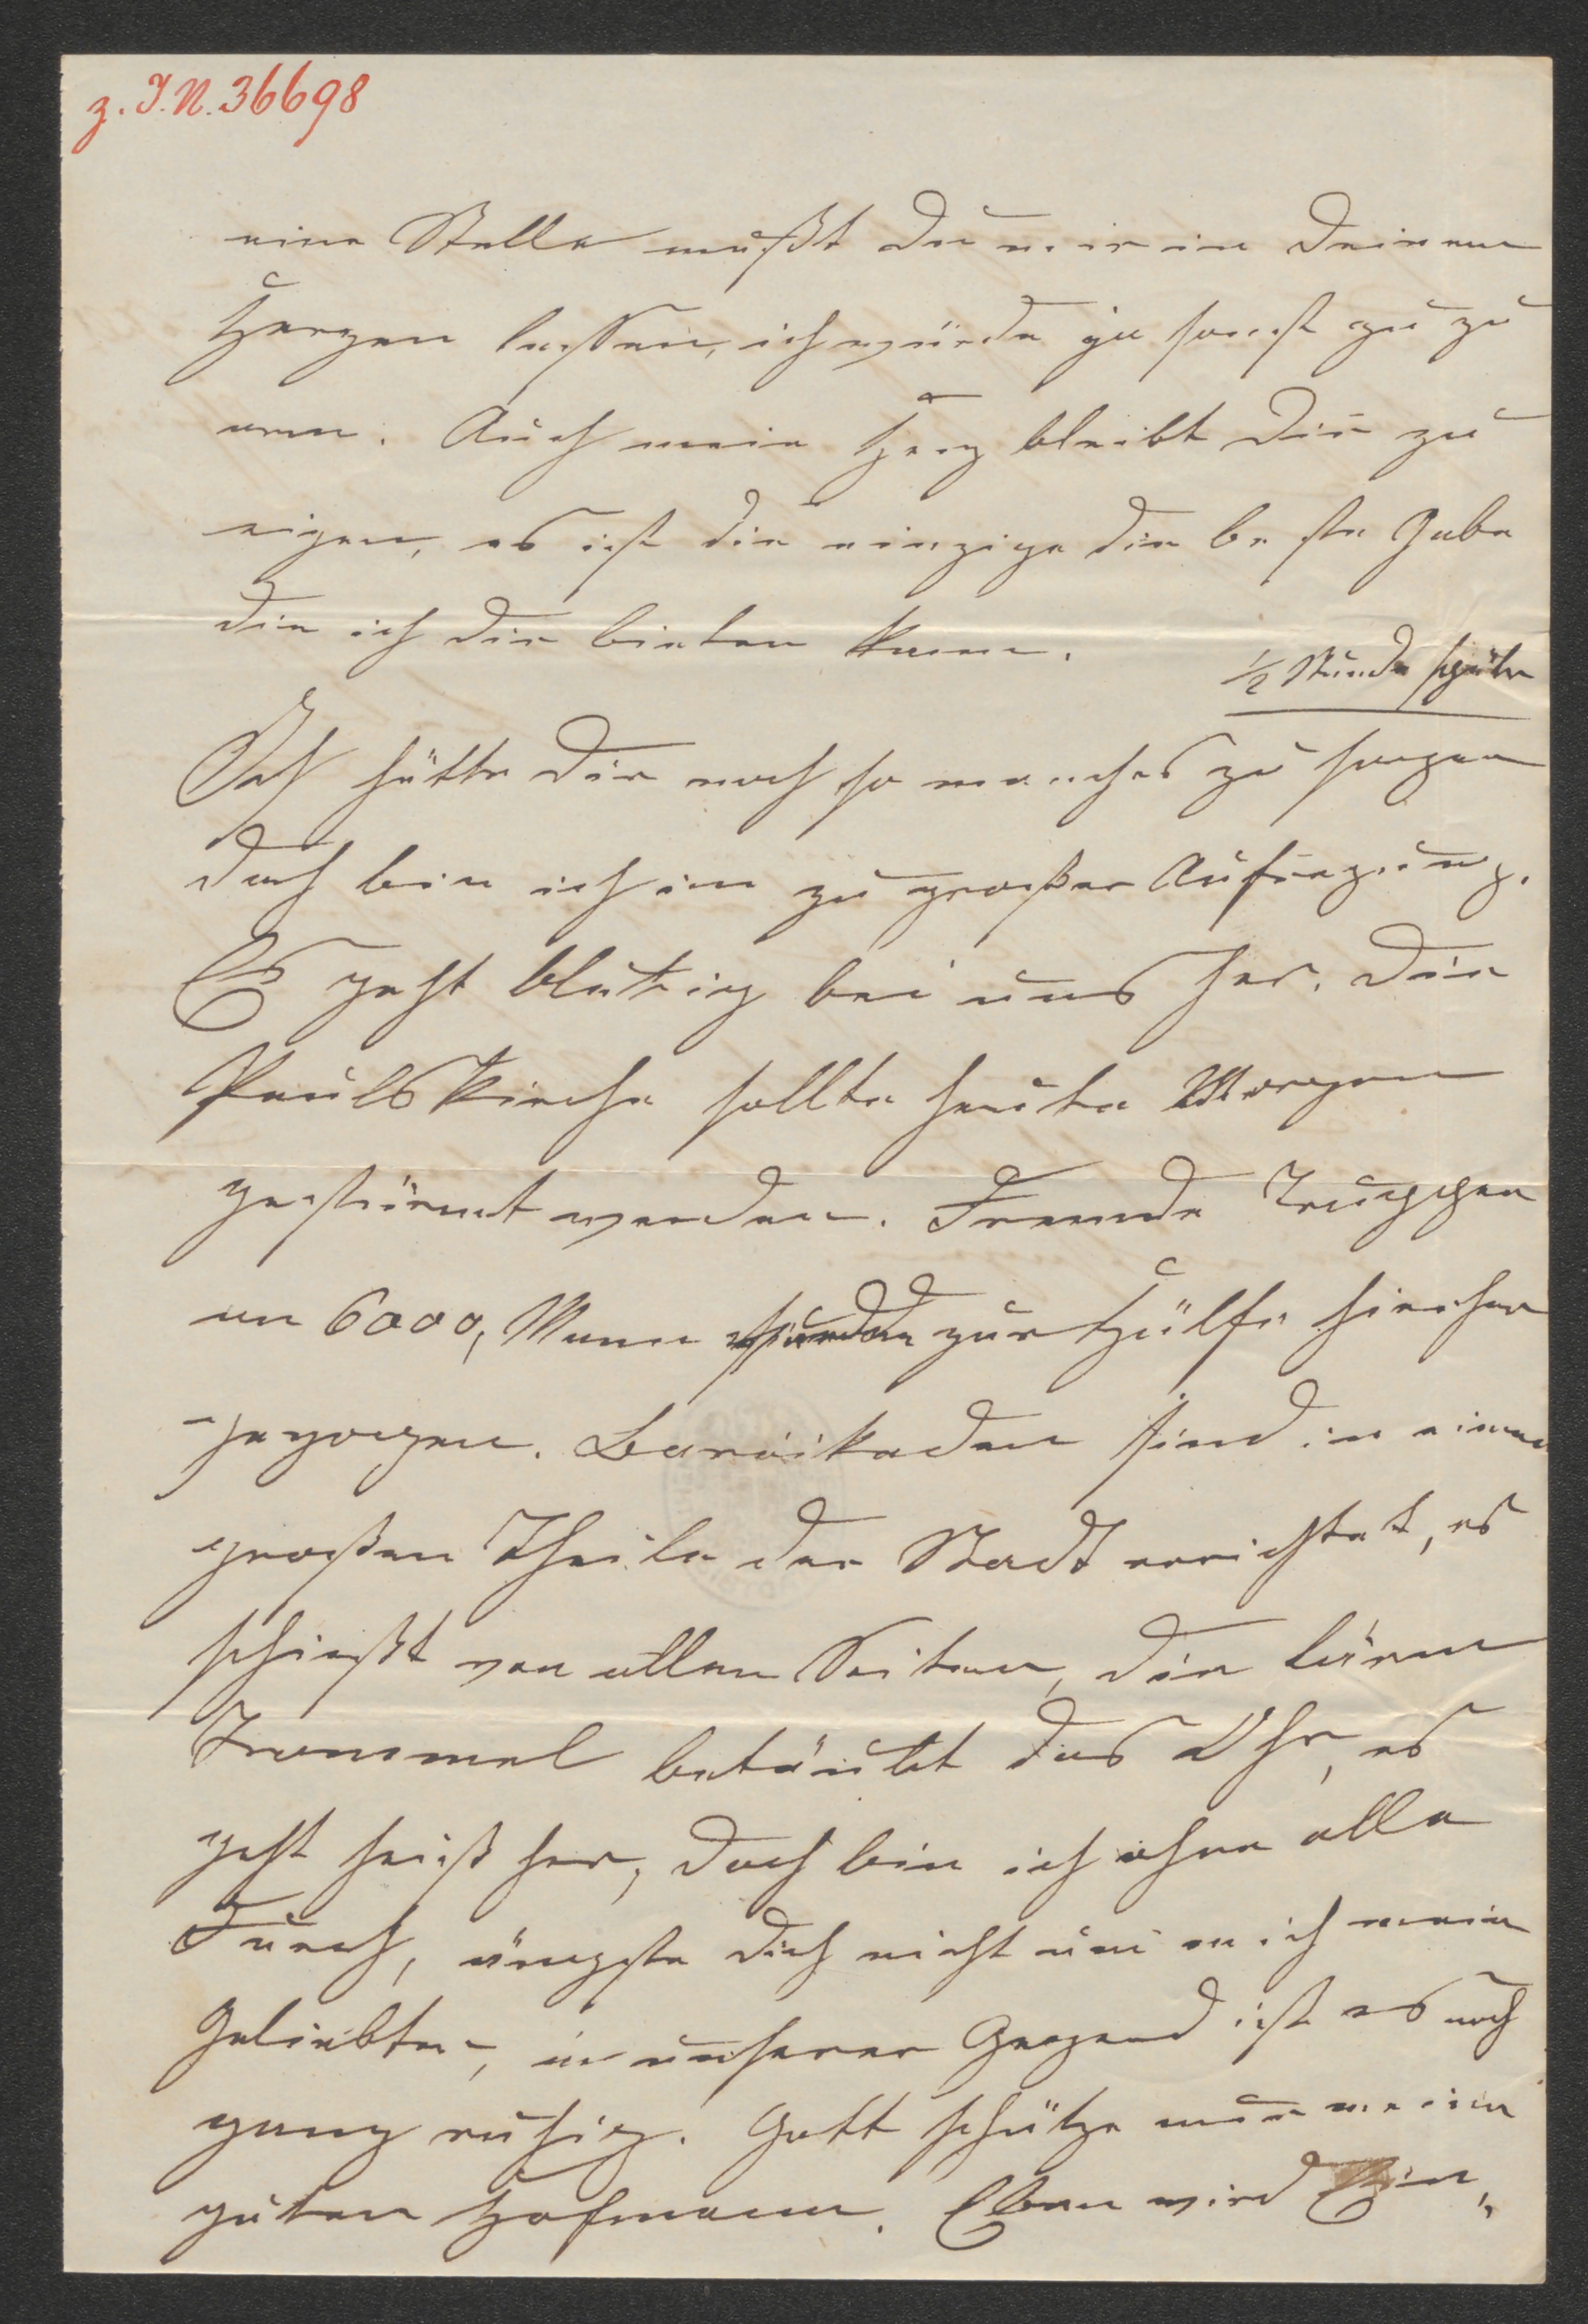 z. I.N. 36698
eine Stelle mußt Du mir in Deinem
Herzen lassen, ich würde ja sonst gar zu
arm. Auch mein Herz bleibt Dir zu
eigen, es ist die einzige die beste Gabe
die ich Dir bieten kann.
1/2 Stunde später
Ich hätte Dir noch so manches zu sagen
doch bin ich in zu großer Aufregung.
Es geht blutig bei uns her. Die
Paulskirche sollte heute Morgen
gestürmt werden. Fremde Truppen
an 6000, Mann wurden zur Hülfe hierher
gezogen. Barrikaden sind in einem
großen Theile der Stadt errichtet, es
schießt von allen Seiten, die Lärm
Trommel betäubt das Ohr, es
geht heiß her, doch bin ich ohne alle
Furch, ängste Dich nicht um mich mein
Geliebter, in unserer Gegend ist es noch
ganz ruhig. Gott schütze nur meinen
guten Hofmann. Eben wird Ein„